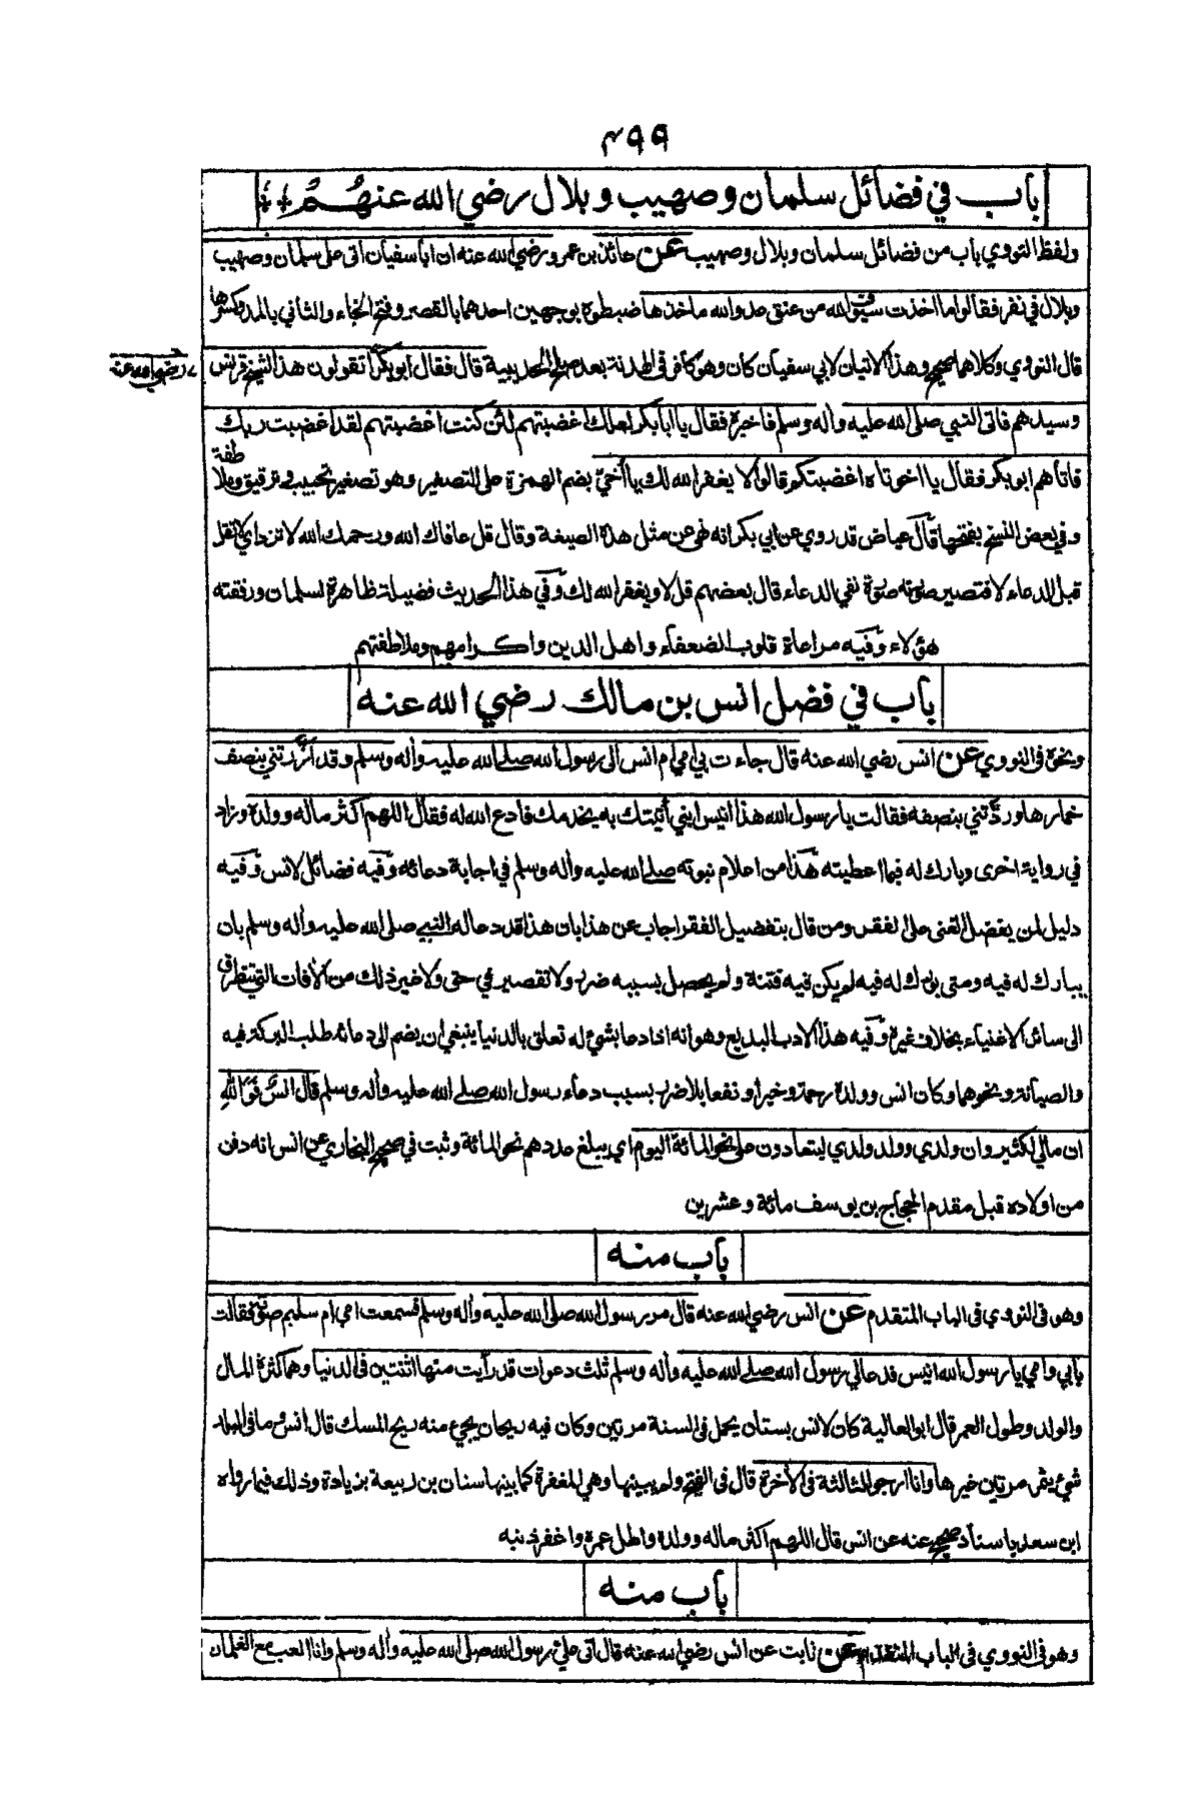 ٤٩٩
باب في فضائل سلمان وصهيب وبلال رضي الله عنهُمْ
ولفظ النووي باب من فضائل سلمان وبلال وصهيب عن عائذ بن عمرو رضي الله عنه ان ابا سفيان اتى على سلمان وصهيب
وبلال في نفر فقالوا ما اخذت سيوف الله من عنق عدو الله ماخذها ضبطوه بوجهين احدهما بالقصر وفتح الخاء والثاني بالمد وكسرها
قال النووي وكلاهما صحيح وهذا الاتيان لابي سفيان كان وهو كافر في الهدنة بعد صلح الحديبية قال فقال ابو بكر اتقولون هذا الشيخ قريش
رضي الله عنه
وسيدهم فاتى النبي صلى الله عليه وأله وسلم فاخبره فقال يا ابا بكر لعلك اغضبتهم لئن كنت اغضبتهم لقد اغضبت ربك
فاتاهم ابو بكر فقال يا اخوتاه اغضبتكم قالوا لا يغفر الله لك يا أخيّ بضم الهمزة على التصغير وهو تصغير تحبيب وترقيق وملاطفة
وفي بعض النسخ بفتحها قال عياض قد روي عن ابي بكر انه نهى عن مثل هذه الصيغة وقال قل عافاك الله ورحمك الله لا تزد اي لا تقل
قبل الدعاء لا فتصير صورته صورة نفي الدعاء قال بعضهم قل لا ويغفر الله لك وفي هذا الحديث فضيلة ظاهرة لسلمان ورفقته
هؤلاء وفيه مراعاة قلوب الضعفاء واهل الدين واكرامهم وملاطفتهم
باب في فضل انس بن مالك رضي الله عنه
ونحوه في النووي عن انس رضي الله عنه قال جاءت بي امي ام انس الى رسول الله صلى الله عليه وأله وسلم وقد أزّرتني بنصف
خمارها وردّتني بنصفه فقالت يا رسول الله هذا انيس ابني أتيتك به يخدمك فادع الله له فقال اللهم اكثر ماله وولده وزاد
في رواية اخرى وبارك له فيما اعطيته هذا من اعلام نبوته صلى الله عليه وأله وسلم في اجابة دعائه وفيه فضائل لانس وفيه
دليل لمن يفضل الغنى على الفقر ومن قال بتفضيل الفقر اجاب عن هذا بان هذا قد دعا له النبي صلى الله عليه وأله وسلم بان
يبارك له فيه ومتى بورك له فيه لم يكن فيه فتنة ولم يحصل بسببه ضرر ولا تقصير في حق ولا غير ذلك من الأفات التي تتطرق
الى سائر الاغنياء بخلاف غيره وفيه هذا الادب البديع وهو انه اذا دعا بشيء له تعلق بالدنيا ينبغي ان يضم الى دعائه طلب البركة فيه
والصيانة ونحوهما وكان انس وولده رحمة وخيرا ونفعا بلا ضرر بسبب دعاء رسول الله صلى الله عليه وأله وسلم قال انسٌ فَوَاللهِ
ان مالي لكثير وان ولدي وولد ولدي ليتعادون على نحو المائة اليوم اي يبلغ عددهم نحو المائة وثبت في صحيح البخاري عن انس انه دفن
من اولاده قبل مقدم الحجاج بن يوسف مائة وعشرين
باب منه
وهو في النووي في الباب المتقدم عن انس رضي الله عنه قال مر رسول الله صلى الله عليه وأله وسلم فسمعت امي ام سليم صوته فقالت
بابي وامي يا رسول الله انيس فدعا لي رسول الله صلى الله عليه وأله وسلم ثلث دعوات قد رأيت منها اثنتين في الدنيا وهما كثرة المال
والولد وطول العمر قال ابو العالية كان لانس بستان يحمل في السنة مرتين وكان فيه ريحان يجيء منه ريح المسك قال انس وما في البلد
شيء يثمر مرتين غيرها وانا ارجو الثالثة في الأخرة قال في الفتح ولم يبينها وهي المغفرة كما بينها سنان بن ربيعة بزيادة وذلك فيما رواه
ابن سعد باسناد صحيح عنه عن انس قال اللهم اكثر ماله وولده واطل عمره واغفر ذنبه
باب منه
وهو في النووي في الباب المتقدم عن ثابت عن انس رضي الله عنه قال اتى عليّ رسول الله صلى الله عليه وأله وسلم وانا العب مع الغلمان